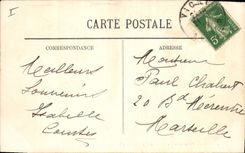 CARTE POSTALE
CORRESPONDANCE
ADRESSE
Meilleurs
Souvenirs
Isabelle
Monsieur
Paul Chabert
20 Bd
Marseille
5